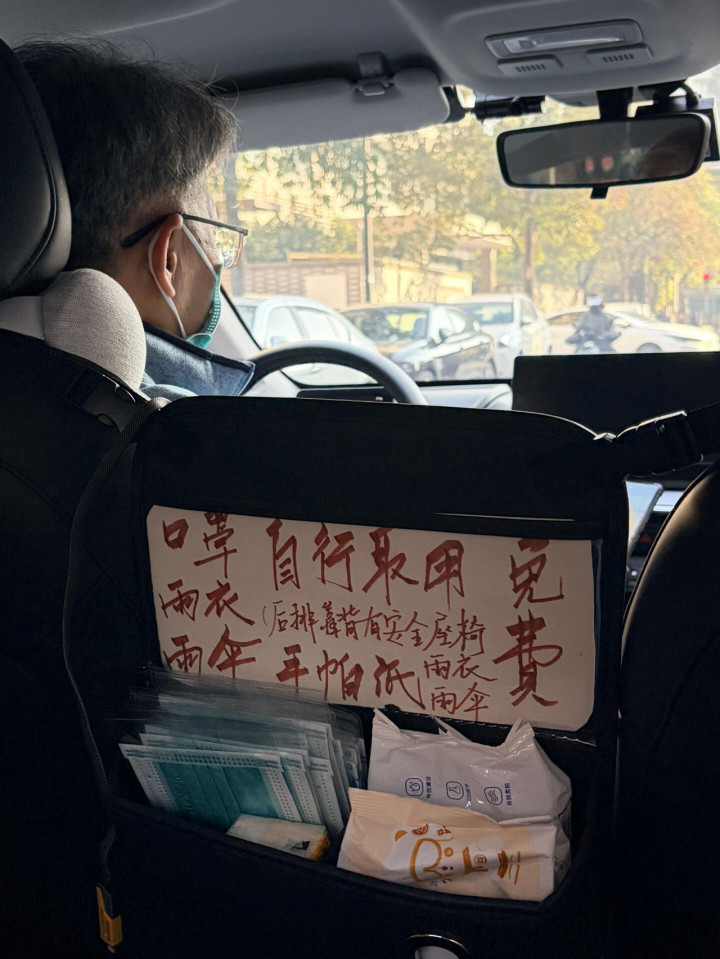 口罩 自行取用 免费
雨衣 (后排靠背有安全座椅
雨伞 手帕纸 雨衣
雨伞